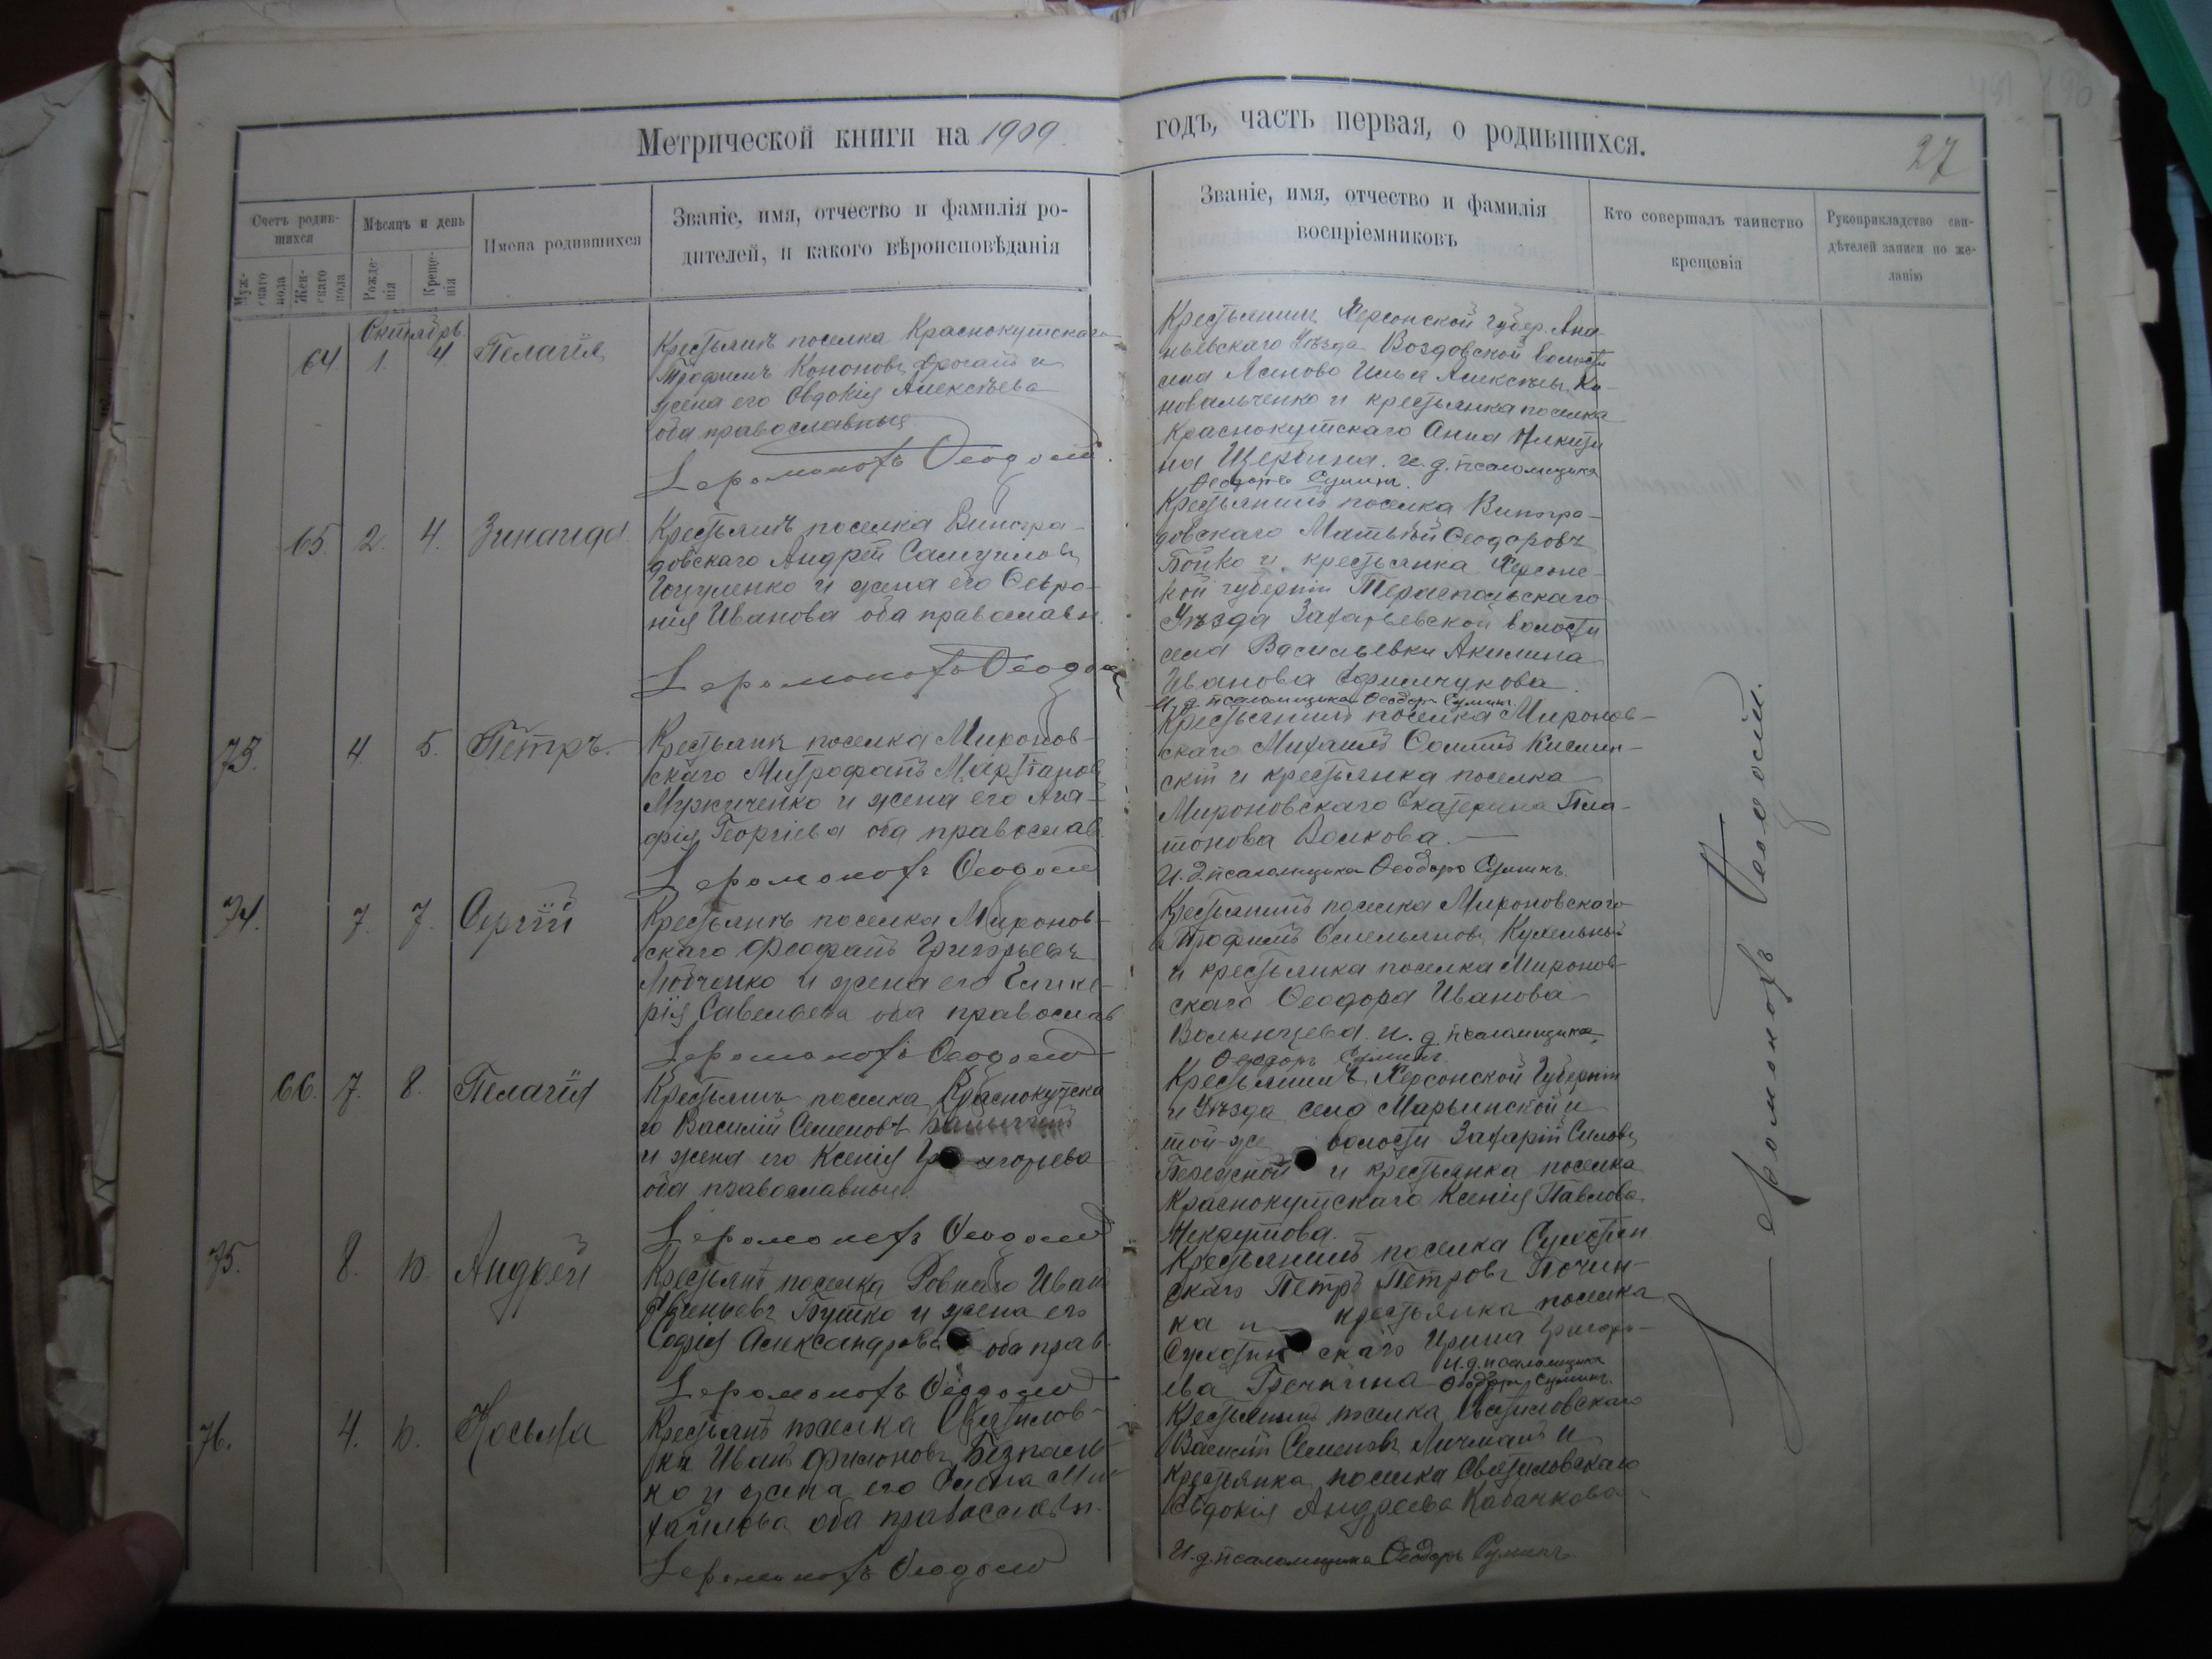 Метрической книги на 1909
годъ, часть первая, о родившихся.
27
Счетъ родив-
шихся
Муж-
скаго
пола
Жен-
скаго
пола
Мѣсяцъ и день
Рожде-
нія
Креще-
нія
Имена родившихся
Званіе, имя, отчество и фамилія ро-
дителей, и какого вѣроисповѣданія
Званіе, имя, отчество и фамилія
воспріемниковъ
Кто совершалъ таинство
крещенія
Рукоприкладство сви-
дѣтелей записи по же-
ланію
Октябрь.
64 1. 4. Пелагія
Крестьянъ поселка Краснокутскаго
Трофимъ Кононовъ и
жена его Евдокія Алексѣева
оба православныя
Іеромонахъ Ѳеодосій
Крестьянинъ Херсонской губер. Ана-
ньевскаго Уѣзда волости
села Ясиново Илья Алексѣевъ Ко-
новальченко и крестьянка поселка
Краснокутскаго Анна Никити-
на Щербина. и. д. псаломщика
Ѳеодоръ
65. 2. 4. Зинаида
Крестьянъ поселка Виногра-
довскаго Андрей Самуиловъ
и жена его Февро-
нія Иванова оба православн.
Іеромонахъ Ѳеодосій
Крестьянинъ поселка Виногра-
довскаго Матвѣй Ѳеодоровъ
Бойко и крестьянка Херсонс-
кой губерніи Тераспольскаго
Уѣзда Захарьевской волости
села Васильевки Акилина
Иванова Ефимчукова.
И. д. псаломщика Ѳеодоръ
73. 4 5. Петръ.
Крестьянъ поселка Миронов-
скаго Митрофанъ
и жена его Ага-
фія Георгіева оба православ
Іеромонахъ Ѳеодосій
Крестьянинъ поселка Миронов-
скаго Михаилъ
и крестьянка поселка
Мироновскаго Екатерина Пла-
тонова Волкова.
И. д. псаломщика Ѳеодоръ
74. 7. 7. Сергій
Крестьянъ поселка Миронов-
скаго Феофанъ Григорьевъ
Любченко и жена его Глике-
рія Савельева оба православ
Іеромонахъ Ѳеодосій
Крестьянинъ поселка Мироновскаго
Трофимъ Емельяновъ
и крестьянка поселка Миронов-
скаго Ѳеодора Иванова
Волынцева. и. д. псаломщика
Ѳеодоръ
66. 7. 8. Пелагія
Крестьянъ поселка Краснокутска
го Василій Семеновъ
и жена его Ксенія Григорьева
оба православныя
Іеромонахъ Ѳеодосій
Крестьянинъ Херсонской Губерніи
и Уѣзда села Марьинской и
той-же волости Захарій Силовъ
Бережной и крестьянка поселка
Краснокутскаго Ксенія Павлова
Некрутова.
75. 8. 10. Андрей
Крестьянъ поселка Ровнаго Иванъ
Бутко и жена его
Софія Александрова оба прав.
Іеромонахъ Ѳеодосій
Крестьянинъ поселка Сухотин
скаго Петръ Петровъ Почин-
ка и крестьянка поселка
Сухотинскаго Ирина Григорь-
ева Гречкина
и. д. псаломщика
Ѳеодоръ
76. 4. 10. Косьма
Крестьянъ поселка Святилов-
ки Иванъ Филоновъ Безпаль-
ко и жена его Елена Ми
хайлова оба православн.
Іеромонахъ Ѳеодосій
Крестьянинъ поселка Святиловскаго
Василій Семеновъ Личманъ и
крестьянка поселка Святиловскаго
Евдокія Андреева Кабачкова
И. д. псаломщика Ѳеодоръ
Іеромонахъ Ѳеодосій.